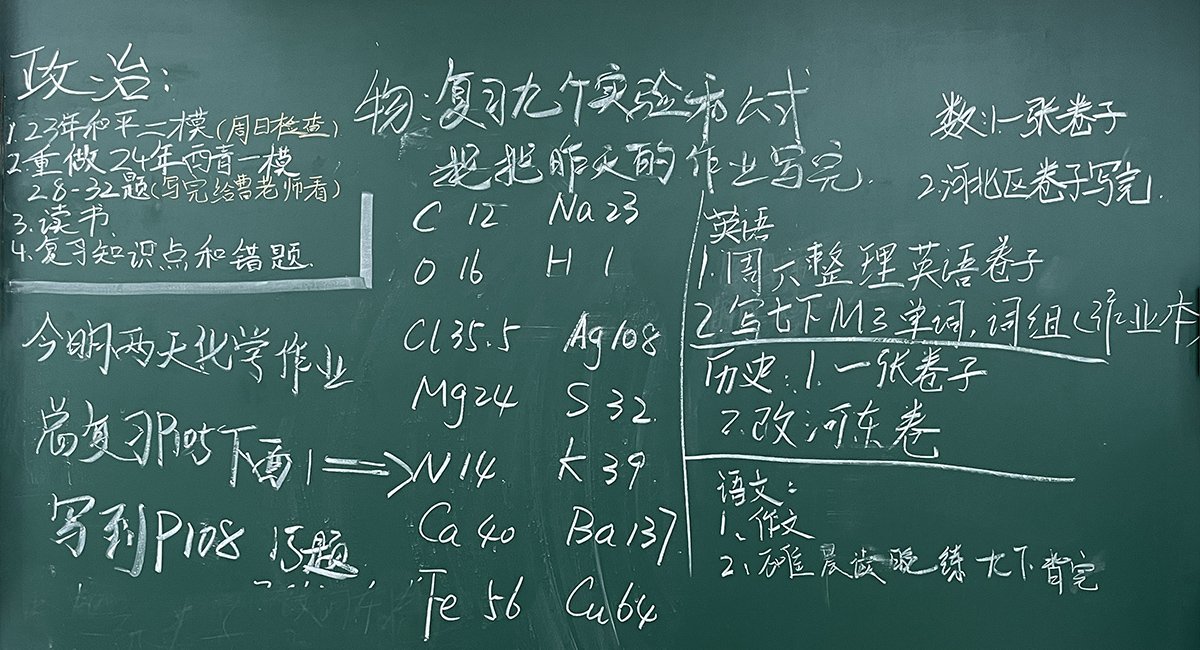 政治:
1.23年和平二模(周日检查)
2.重做24年西青一模
28-32题(写完给曹老师看)
3.读书
4.复习知识点和错题.
今明两天化学作业
总复习P105下面1⟹
写到P108 15题
物:复习九个实验和公式
把昨天的作业写完.
C 12 Na 23
O 16 H 1
Cl 35.5 Ag 108
Mg 24 S 32
N 14 K 39
Ca 40 Ba 137
Fe 56 Cu 64
数:1.一张卷子
2.河北区卷子写完.
英语
1.周六整理英语卷子
2.写七下M3单词,词组(作业本
历史:1.一张卷子
2.改河东卷
语文:
1、作文
2、晨读晚练七下背完